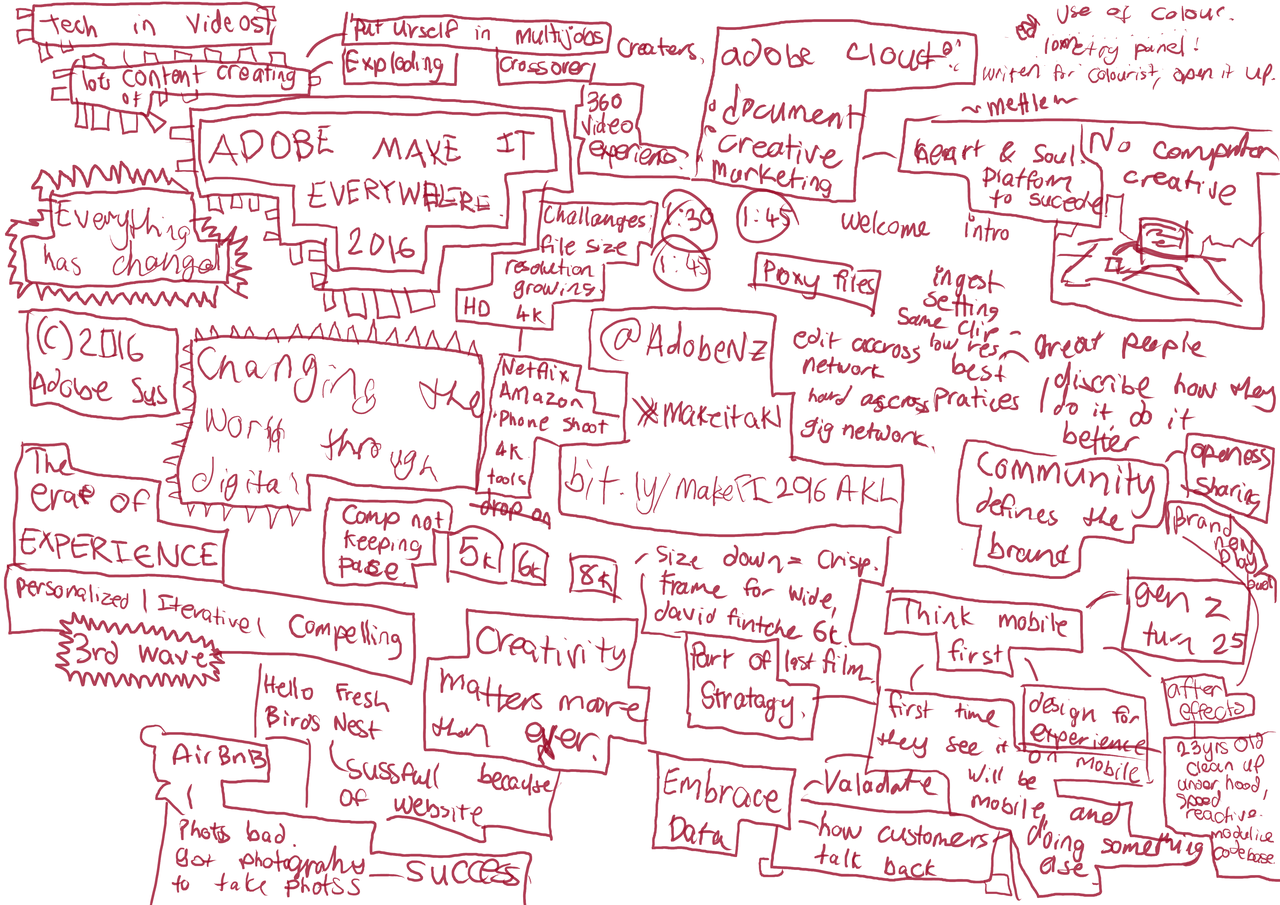 tech in videos!
lots content creating
of
put urself in multijobs
Exploding
crossover
Creaters,
360
video
experienc.
adobe cloud
document
creative
marketing
use of colour.
lometry panel!
writen for colourist, open it up.
~mettle~
heart & soul!
platform
to sucede!
No compution
creative
ADOBE MAKE IT
EVERYWHERE
2016
Everything
has changed
Challanges:
file size
resolution
growing.
HD 4K
1:30
1:45
1:45
welcome intro
Proxy files
ingest
setting
same clip -
low res
best
pratices
edit accross
network
hard ascross
gig network.
great people
discribe how they
do it do it
better
(C) 2016
Adobe Sys
Changing the
world through
digital
Netflix
Amazon
Phone shoot
4K
tools
drop on
@AdobeNZ
makeitakl
bit.ly/makeIT2016AKL
community
defines the
brand
openess
sharing
Brand
new
play
The
erae of
EXPERIENCE
Comp not
keeping
pase
5K
6K
8K
size down = Crisp.
frame for wide,
david fintche 6k.
Part of last film.
Stratagy.
Think mobile
first
gen z
turn 25
personalized | Iterative | Compelling
3rd wave
Creativity
matters more
than ever.
Hello Fresh
Birds Nest
sussfull because
of website
AirBnB
Photss bad.
Got photography
to take photss
SUCCESS
first time
they see it
will be
mobile, and
doing something
else
design for
experience
on mobile
after
effects
23yrs old
clean up
under hood,
speed
reactive.
modulice
codebase
Embrace
Data
Valadate
how customers
talk back